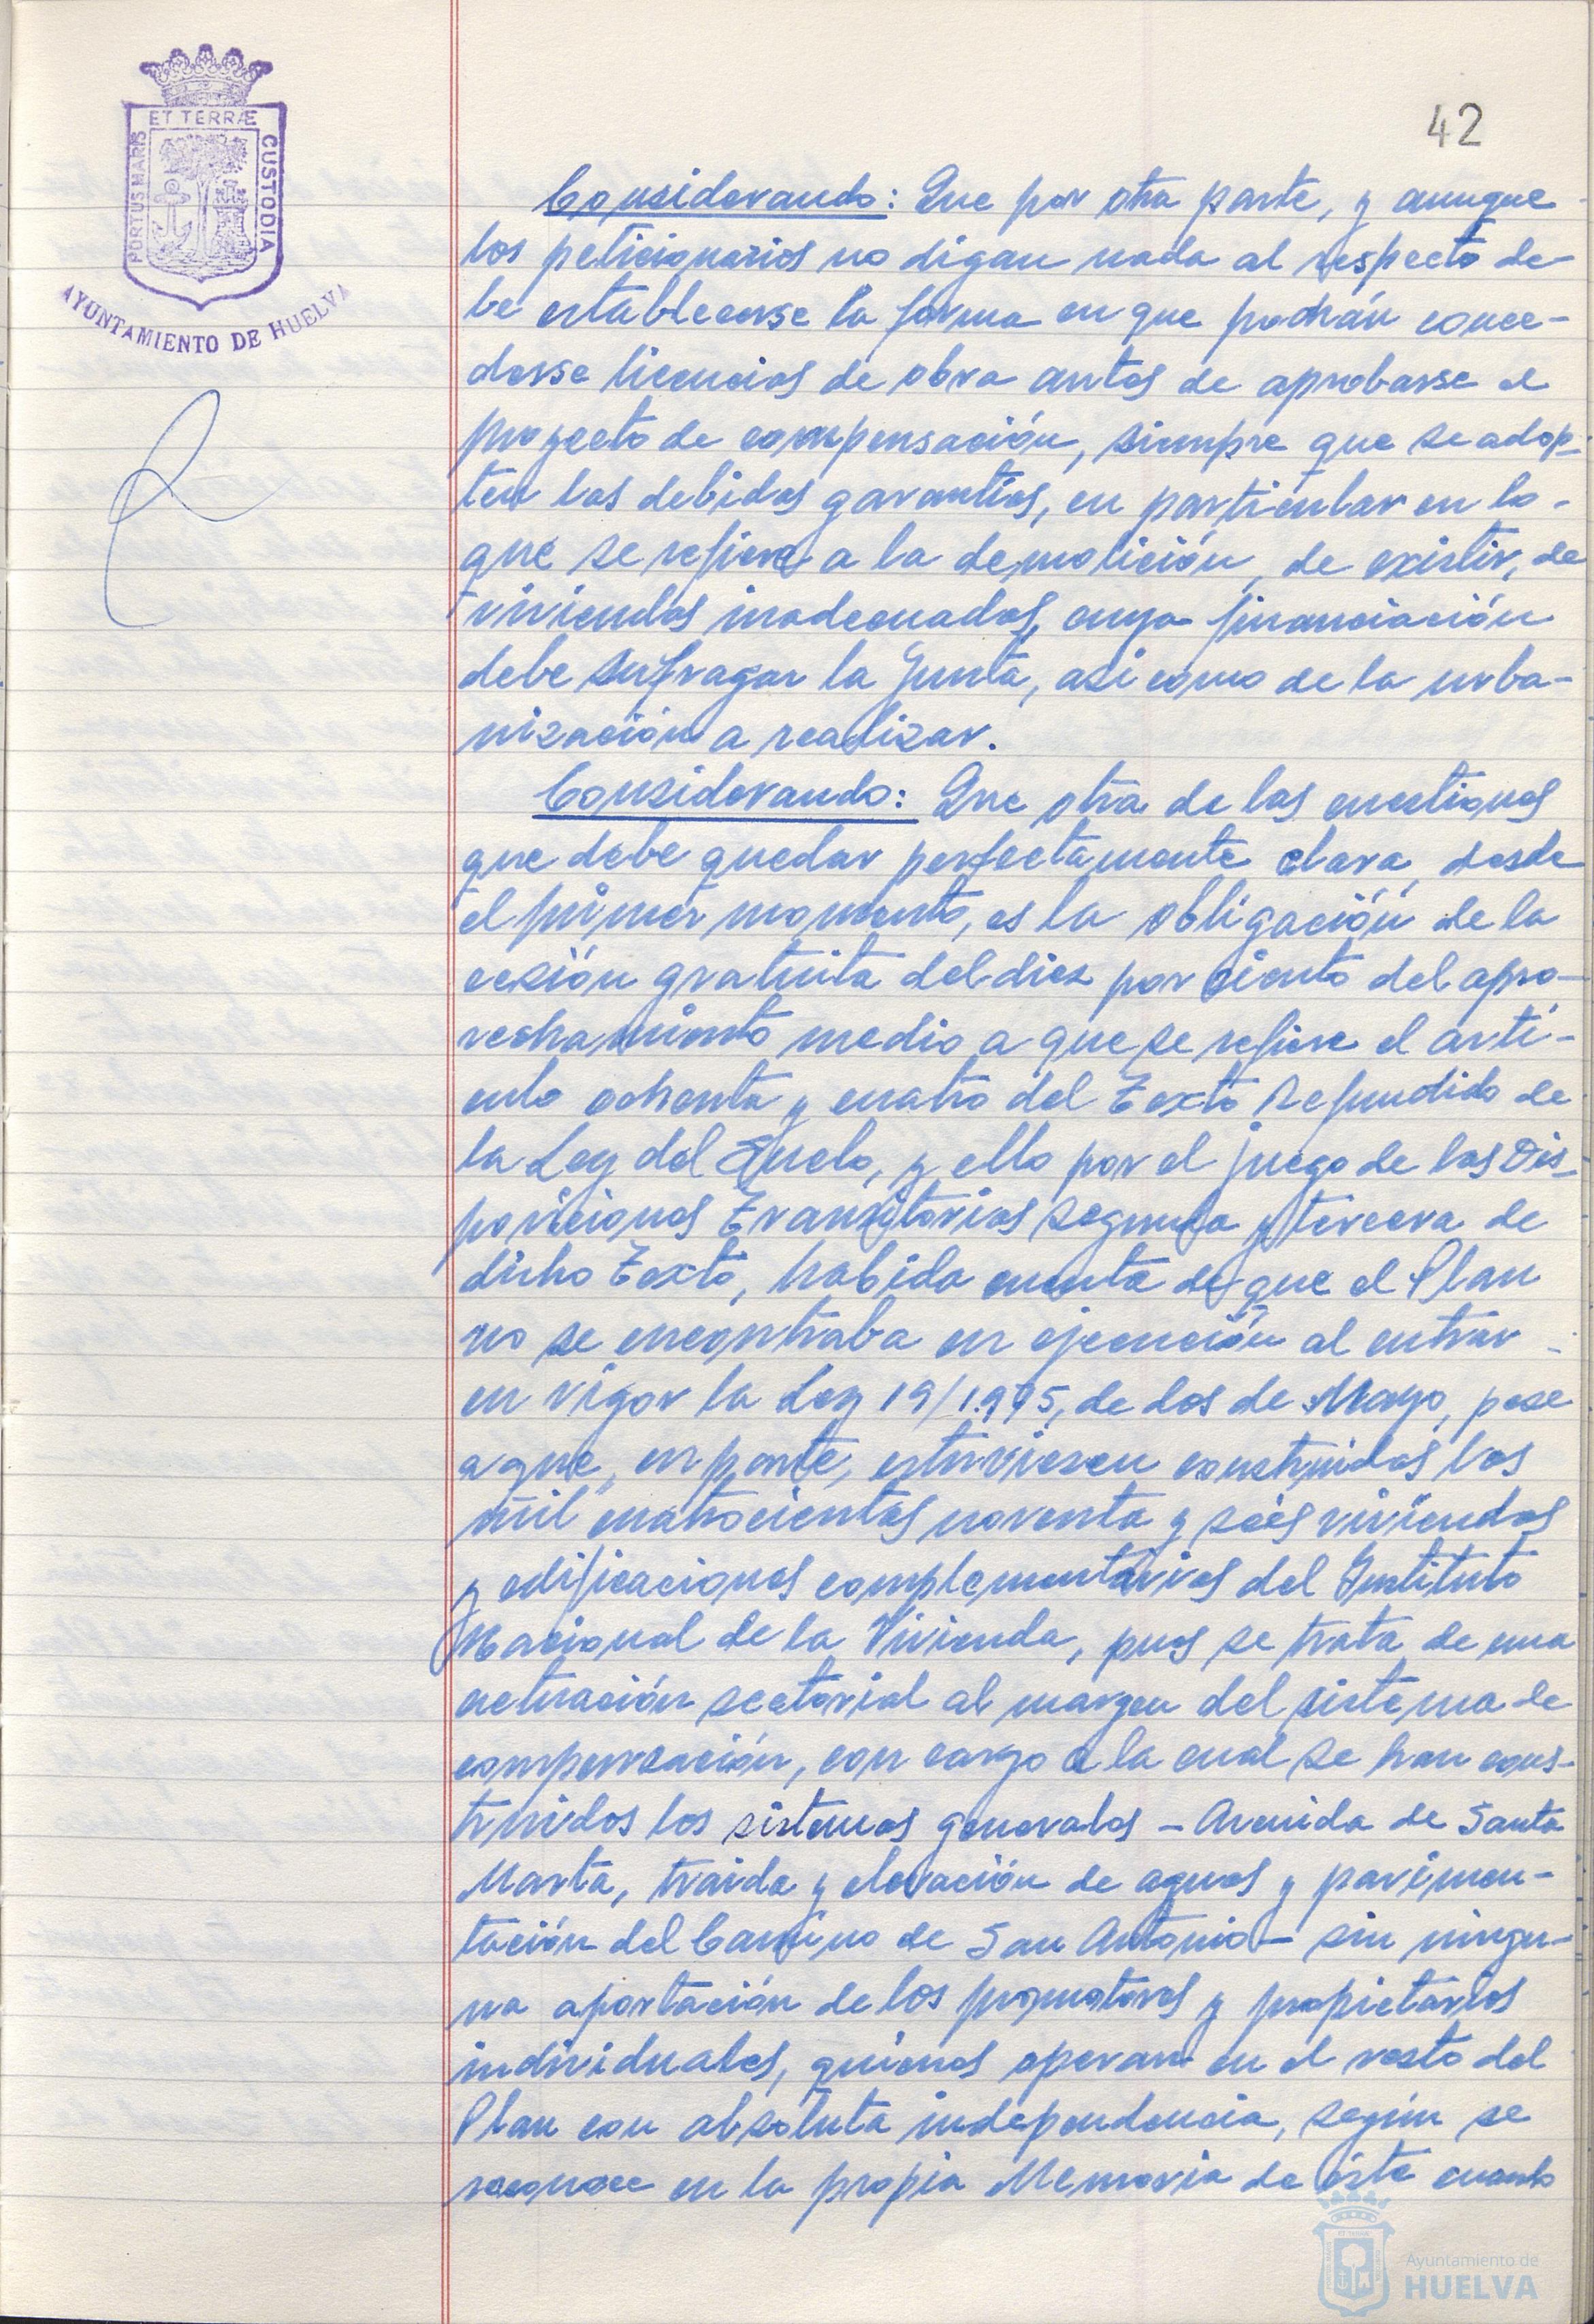 ET TERRÆ
PORTUS MARIS
CUSTODIA
AYUNTAMIENTO DE HUELVA
42
Considerando: Que por otra parte, y aunque
los peticionarios no digan nada al respecto de-
be establecerse la forma en que podrán conce-
derse licencias de obra antes de aprobarse el
proyecto de compensación, siempre que se adop-
ten las debidas garantías, en particular en lo
que se refiere a la demolición, de existir, de
viviendas inadecuadas, cuya financiación
debe sufragar la Junta, asi como de la urba-
nización a realizar.
Considerando: Que otra de las cuestiones
que debe quedar perfectamente clara, desde
el primer momento, es la obligación de la
cesión gratuita del diez por ciento del apro-
vechamiento medio a que se refiere el artí-
culo ochenta y cuatro del Texto Refundido de
la Ley del Suelo, y ello por el juego de las Dis-
posiciones Transitorias segunda y tercera de
dicho Texto, habida cuenta de que el Plan
no se encontraba en ejecución al entrar
en vigor la Ley 19/1.975, de dos de Mayo, pese
a que, en parte, estuviesen construidas las
mil cuatrocientas noventa y seis viviendas
y edificaciones complementarias del Instituto
Nacional de la Vivienda, pues se trata de una
actuación sectorial al margen del sistema de
compensación, con cargo a la cual se han cons-
truidos los sistemas generales - Avenida de Santa
Marta, traida y elevación de aguas y pavimen-
tación del Camino de San Antonio - sin ningu-
na aportación de los promotores y propietarios
individuales, quienes operan en el resto del
Plan con absoluta independencia, según se
reconoce en la propia Memoria de éste cuando
Ayuntamiento de
HUELVA